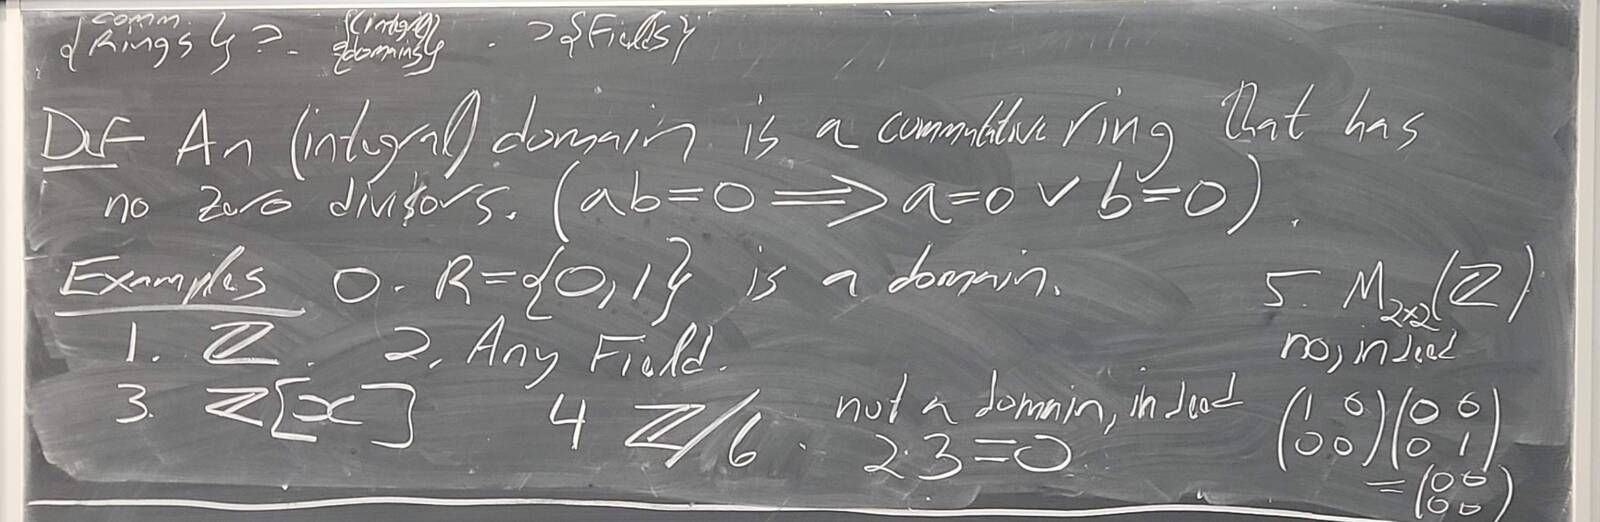 {comm. Rings} ⊃ {(integral) domains} ⊃ {Fields}
Def An (integral) domain is a commutative ring that has
no zero divisors. (ab=0 ⟹ a=0 ∨ b=0).
Examples 0. R={0,1} is a domain.
1. ℤ. 2. Any Field.
3. ℤ[x] 4 ℤ/6. not a domain, indeed
2·3=0
5. M₂ₓ₂(ℤ)
no, indeed
(1 0) (0 0)
(0 0) (0 1)
= (0 0)
(0 0)